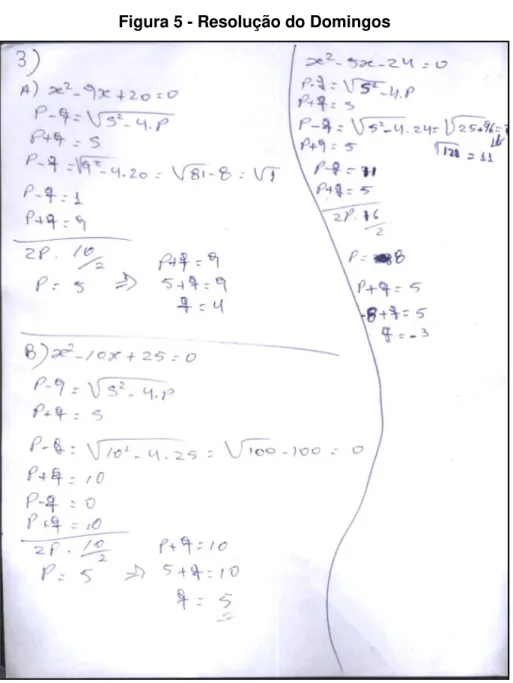 Figura 5 - Resolução do Domingos
3)
A) x² - 9x + 20 = 0
P - q = √S² - 4.P
P + q = S
P - q = √9² - 4.20 = √81 - 8 = √1
P - q = 1
P + q = 9
2P . 10/2
P = 5 ⇒
P + q = 9
5 + q = 9
q = 4
B) x² - 10x + 25 = 0
P - q = √S² - 4.P
P + q = S
P - q = √10² - 4.25 = √100 - 100 = 0
P + q = 10
P - q = 0
P + q = 10
2P . 10/2
P = 5 ⇒
P + q = 10
5 + q = 10
q = 5
x² - 5x - 24 = 0
P - q = √S² - 4.P
P + q = S
P - q = √5² - 4.24 = √25 + 96 =
P + q = 5
√121 = 11
P - q = 11
P + q = 5
2P . 16/2
P = 8
P + q = 5
8 + q = 5
q = -3